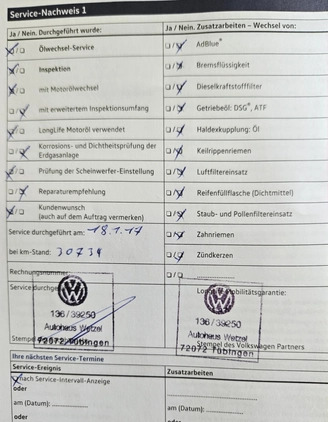 Service-Nachweis 1
Ja / Nein. Durchgeführt wurde:
Ölwechsel-Service
Inspektion
mit Motorölwechsel
mit erweitertem Inspektionsumfang
LongLife Motoröl verwendet
Korrosions- und Dichtheitsprüfung der
Erdgasanlage
Prüfung der Scheinwerfer-Einstellung
Reparaturempfehlung
Kundenwunsch
(auch auf dem Auftrag vermerken)
Service durchgeführt am: 18.1.17
bei km-Stand: 30734
Rechnungsnummer
Service durchgeführt
136/39250
Autohaus Wetzel
72072 Tübingen
Stempel
Ja / Nein. Zusatzarbeiten – Wechsel von:
AdBlue®
Bremsflüssigkeit
Dieselkraftstofffilter
Getriebeöl: DSG®, ATF
Haldexkupplung: Öl
Keilrippenriemen
Luftfiltereinsatz
Reifenfüllflasche (Dichtmittel)
Staub- und Pollenfiltereinsatz
Zahnriemen
Zündkerzen
Mobilitätsgarantie:
136/39250
Autohaus Wetzel
Stempel des Volkswagen Partners
72072 Tübingen
Ihre nächsten Service-Termine
Service-Ereignis
nach Service-Intervall-Anzeige
oder
am (Datum):
oder
Zusatzarbeiten
am (Datum):
oder